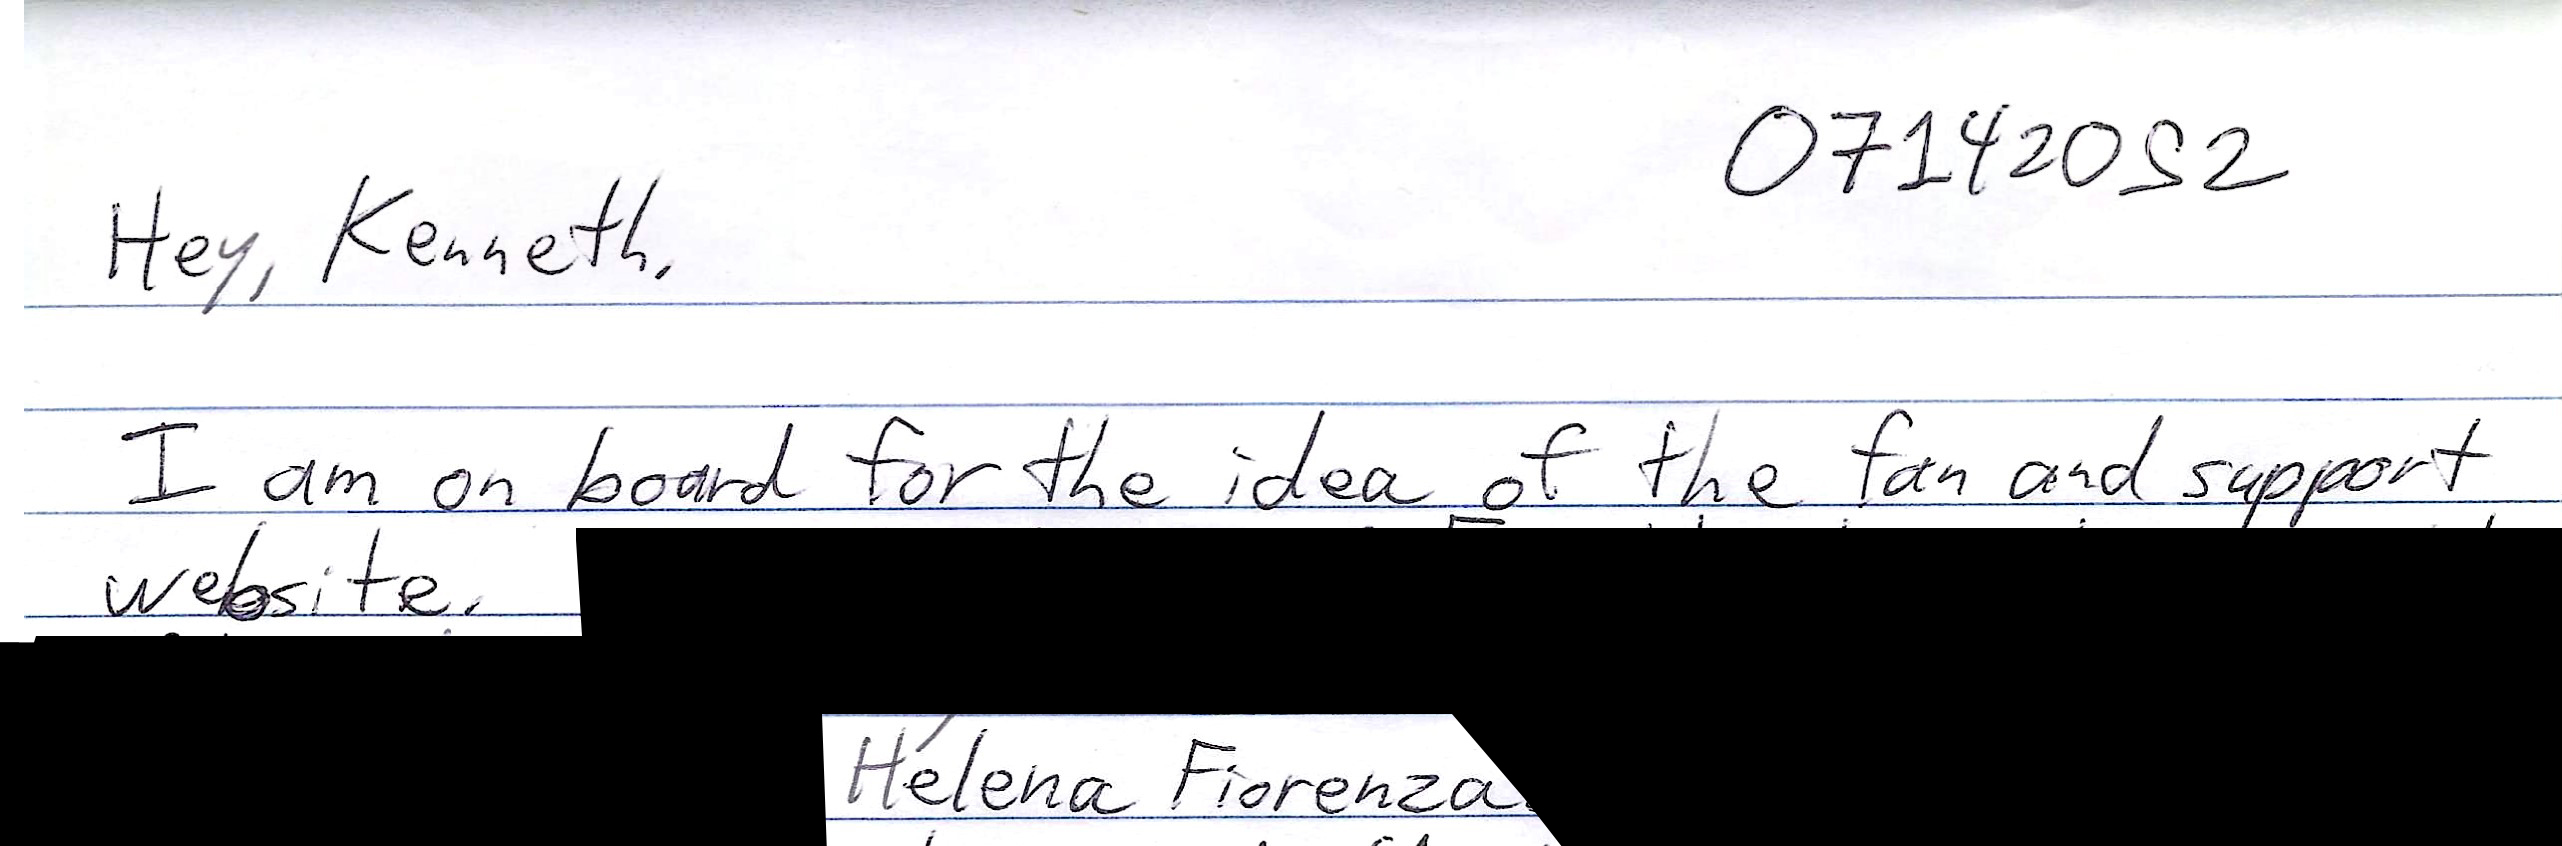 07142052
Hey, Kenneth.
I am on board for the idea of the fan and support
website.
Helena Fiorenza.